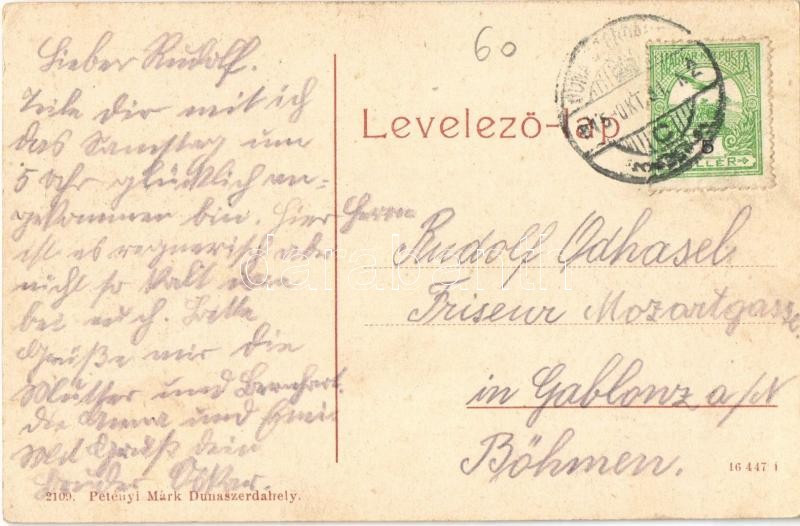 60
Levelező-lap
MAGYAR POSTA
Lieber Rudolf.
Teile dir mit ich
das Samstag um
5 Uhr glücklich an-
gekommen bin. Hier
ist es regnerisch aber
nicht so kalt wie
bei euch. Bitte
Grüße mir die
Mutter und Bernhart.
die Anna und
Mit Gruß dein
Bruder Oskar.
Herrn
Rudolf Odhasel
Friseur Mozartgasse
in Gablonz a/N
Böhmen.
2109. Petényi Márk Dunaszerdahely.
16 447
darabanth